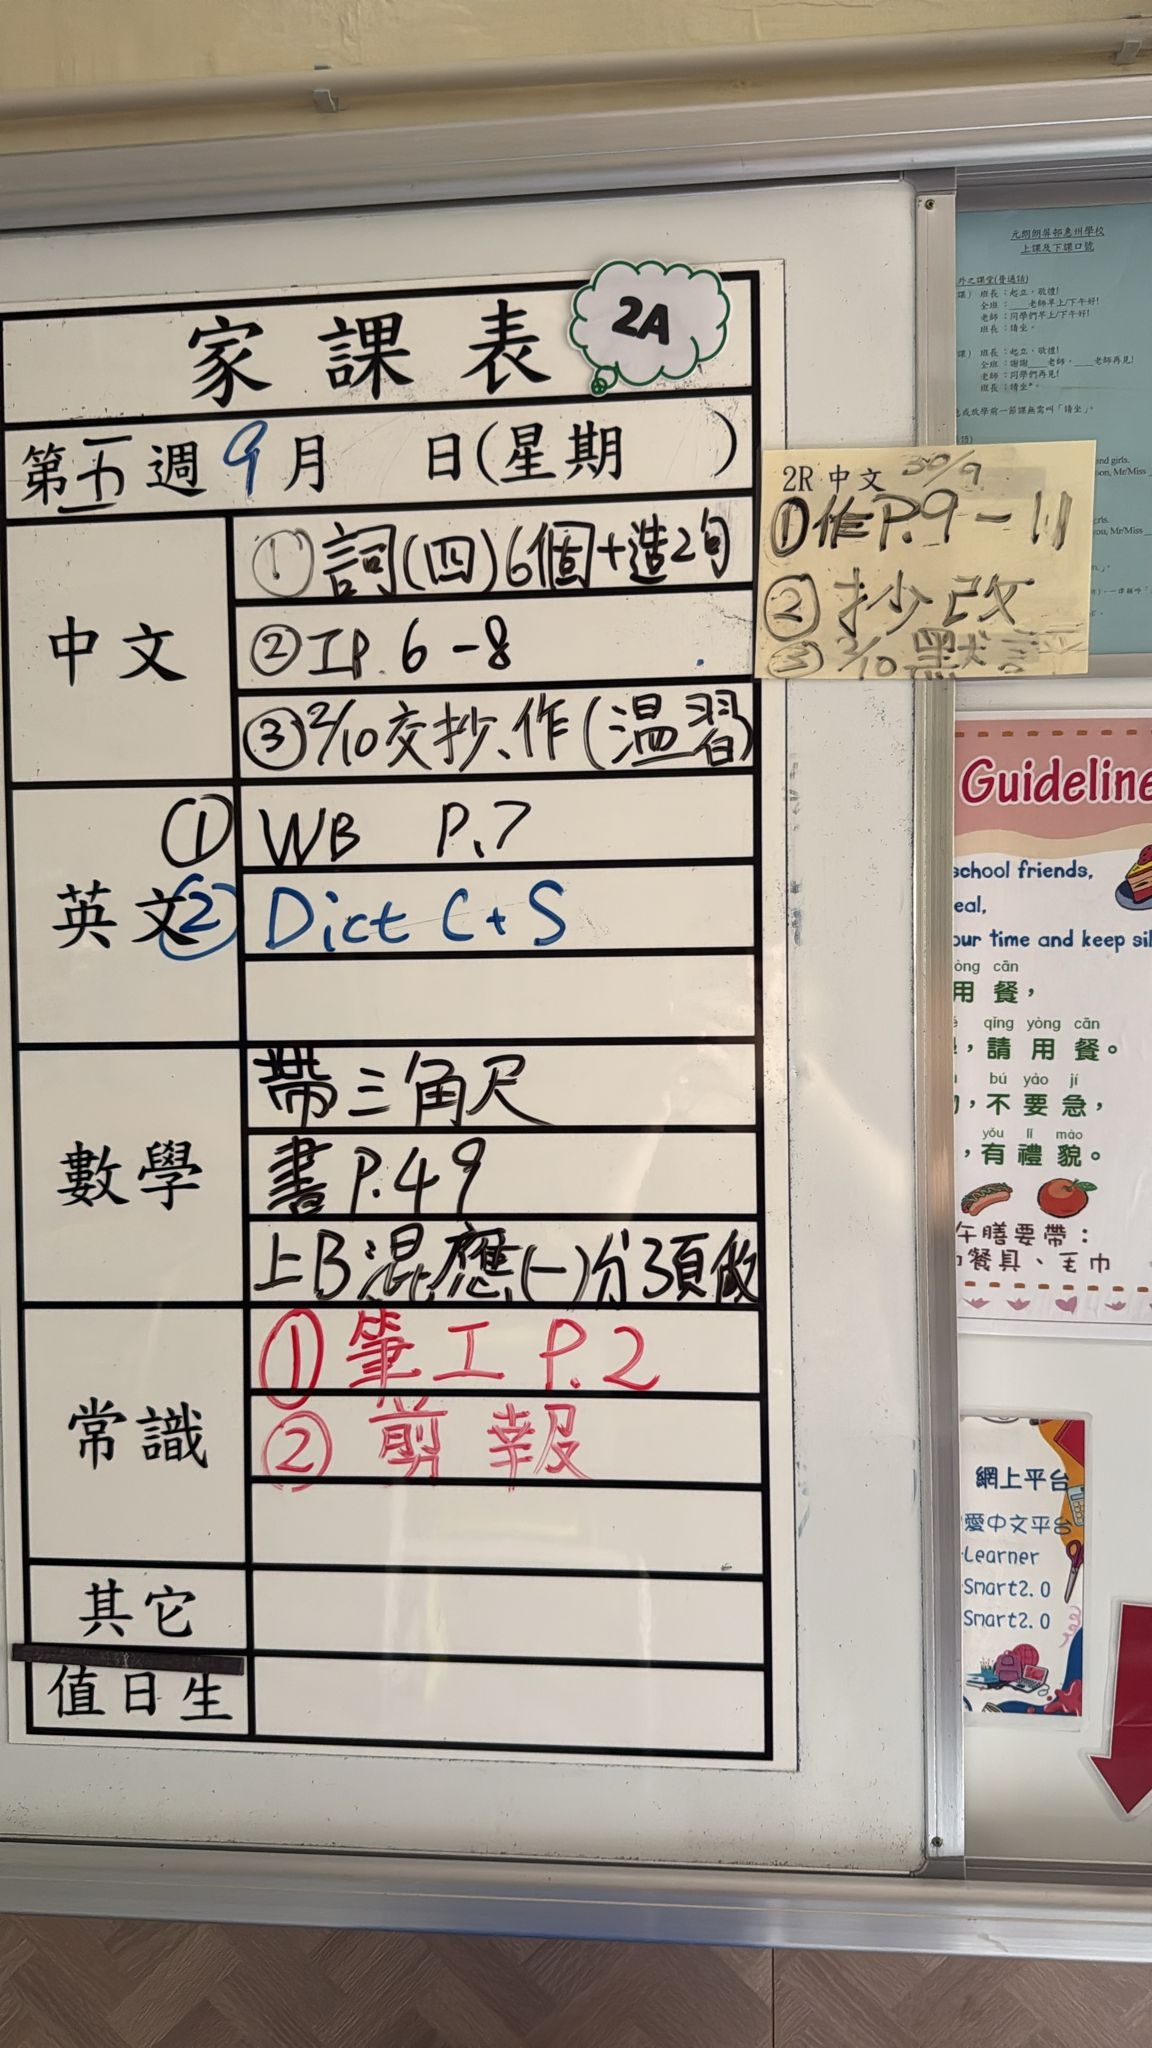 家課表
2A
第五週9月 日(星期 )
中文
①詞(四)6個+造2句
②工P.6-8
③2/10交抄、作(溫習)
英文
① WB P.7
② Dict C+S
數學
帶三角尺
書P.49
上B混應(一)分3頁做
常識
①筆工P.2
②剪報
其它
值日生
2R 中文 30/9
①作P.9-11
②抄改
③2/10默
元朗朗屏邨惠州學校
上課及下課口號
外之課堂(普通話)
課) 班長：起立，敬禮!
全班：___老師早上/下午好!
老師：同學們早上/下午好!
班長：請坐。
課) 班長：起立，敬禮!
全班：謝謝___老師，___老師再見!
老師：同學們再見!
班長：請坐。
放學前一節課無需叫「請坐」。
and girls.
oon, Mr/Miss
rls.
you, Mr/Miss
Guideline
school friends,
eal,
our time and keep sil
òng cān
用餐，
qǐng yòng cān
，請用餐。
bú yào jí
，不要急，
yǒu lǐ mào
，有禮貌。
午膳要帶：
餐具、毛巾
網上平台
愛中文平台
Learner
Smart2.0
Smart2.0